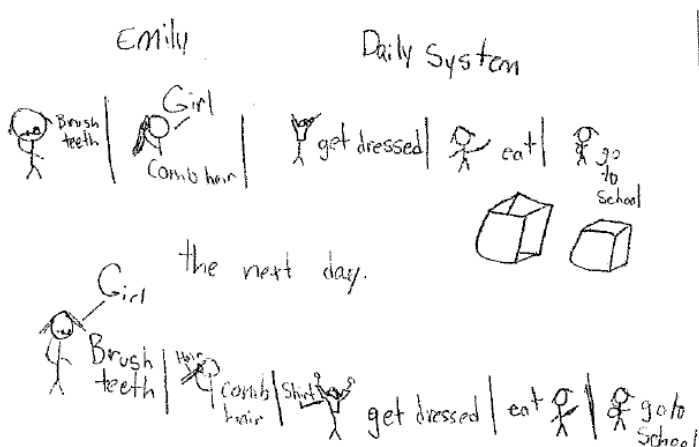 Emily
Daily System
Brush
teeth
Girl
Comb hair
get dressed
eat
go
to
school
the next day.
Girl
Brush
teeth
Hair
comb
hair
Shirt
get dressed
eat
go to
School